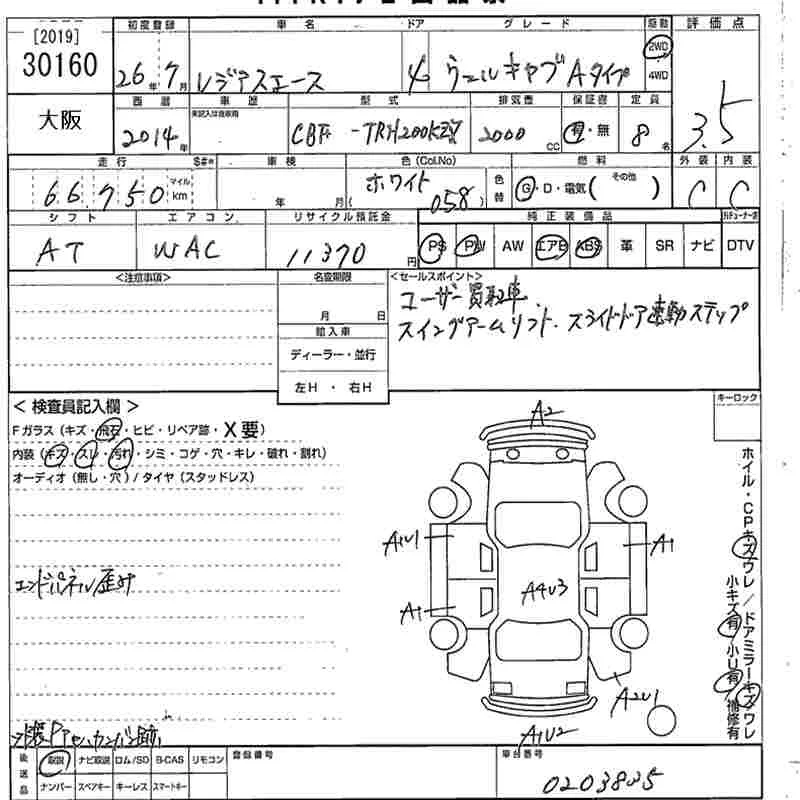 [2019]
30160
初度登録 車名 ドア グレード 駆動 評価点
26年 7月 レジアスエース 4 ウェルキャブAタイプ 2WD 4WD 3.5
大阪
西暦 車歴 型式 排気量 保証書 定員
未記入は自家用
2014年 CBF-TRH200K 2000CC 有・無 8名
走行 $#* 車検 色(Col.No) 燃料 外装 内装
66,750 マイル km 年 月 ホワイト (058) 色替 G・D・電気( その他 ) C C
シフト エアコン リサイクル預託金 純正装備品
AT WAC 11370円 PS PW AW エアB ABS 革 SR ナビ DTV
<注意事項> 名変期限 <セールスポイント>
ユーザー買取車
月 日 スイングアームリフト.スライドドア連動ステップ
輸入車
ディーラー・並行
左H・右H
<検査員記入欄> キーロック
Fガラス(キズ・飛石・ヒビ・リペア跡・X要)
内装(キズ・スレ・汚れ・シミ・コゲ・穴・キレ・破れ・割れ)
オーディオ(無し・穴)/タイヤ(スタッドレス)
A2
A1U1 A1
エンドパネル歪み
A4U3
A1
A2U1
A1U2
ホイル・CPキズワレ/ドアミラーキズワレ
小キズ有 小U有 補修有
カンバン跡
後送品 取説 ナビ取説 ロム/SD B-CAS リモコン 登録番号 車台番号
ナンバー スペアキー キーレス スマートキー 0203825